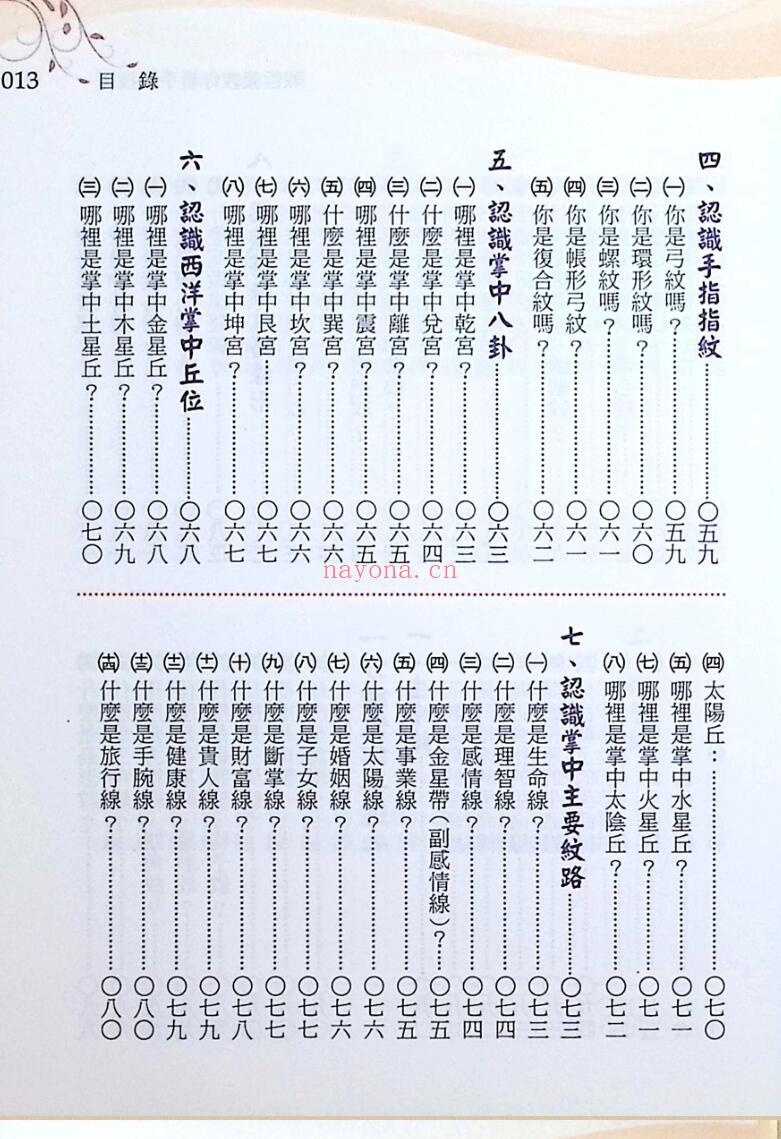 013
目錄
四、認識手指指紋……〇五九
㈠你是弓紋嗎？……〇五九
㈡你是環形紋嗎？……〇六〇
㈢你是螺紋嗎？……〇六一
㈣你是帳形弓紋？……〇六一
㈤你是復合紋嗎？……〇六二
五、認識掌中八卦……〇六三
㈠哪裡是掌中乾宮？……〇六三
㈡什麼是掌中兌宮？……〇六四
㈢什麼是掌中離宮？……〇六五
㈣哪裡是掌中震宮？……〇六五
㈤什麼是掌中巽宮？……〇六六
㈥哪裡是掌中坎宮？……〇六六
㈦哪裡是掌中艮宮？……〇六七
㈧哪裡是掌中坤宮？……〇六七
六、認識西洋掌中丘位……〇六八
㈠哪裡是掌中金星丘？……〇六八
㈡哪裡是掌中木星丘？……〇六九
㈢哪裡是掌中土星丘？……〇七〇
nayona.cn
㈣太陽丘：……〇七〇
㈤哪裡是掌中水星丘？……〇七一
㈦哪裡是掌中火星丘？……〇七一
㈧哪裡是掌中太陰丘？……〇七二
七、認識掌中主要紋路……〇七三
㈠什麼是生命線？……〇七三
㈡什麼是理智線？……〇七四
㈢什麼是感情線？……〇七四
㈣什麼是金星帶（副感情線）？……〇七五
㈤什麼是事業線？……〇七五
㈥什麼是太陽線？……〇七六
㈦什麼是婚姻線？……〇七六
㈧什麼是子女線？……〇七七
㈨什麼是斷掌線？……〇七七
㈩什麼是財富線？……〇七八
(十一)什麼是貴人線？……〇七九
(十二)什麼是健康線？……〇七九
(十三)什麼是手腕線？……〇八〇
(十四)什麼是旅行線？……〇八〇